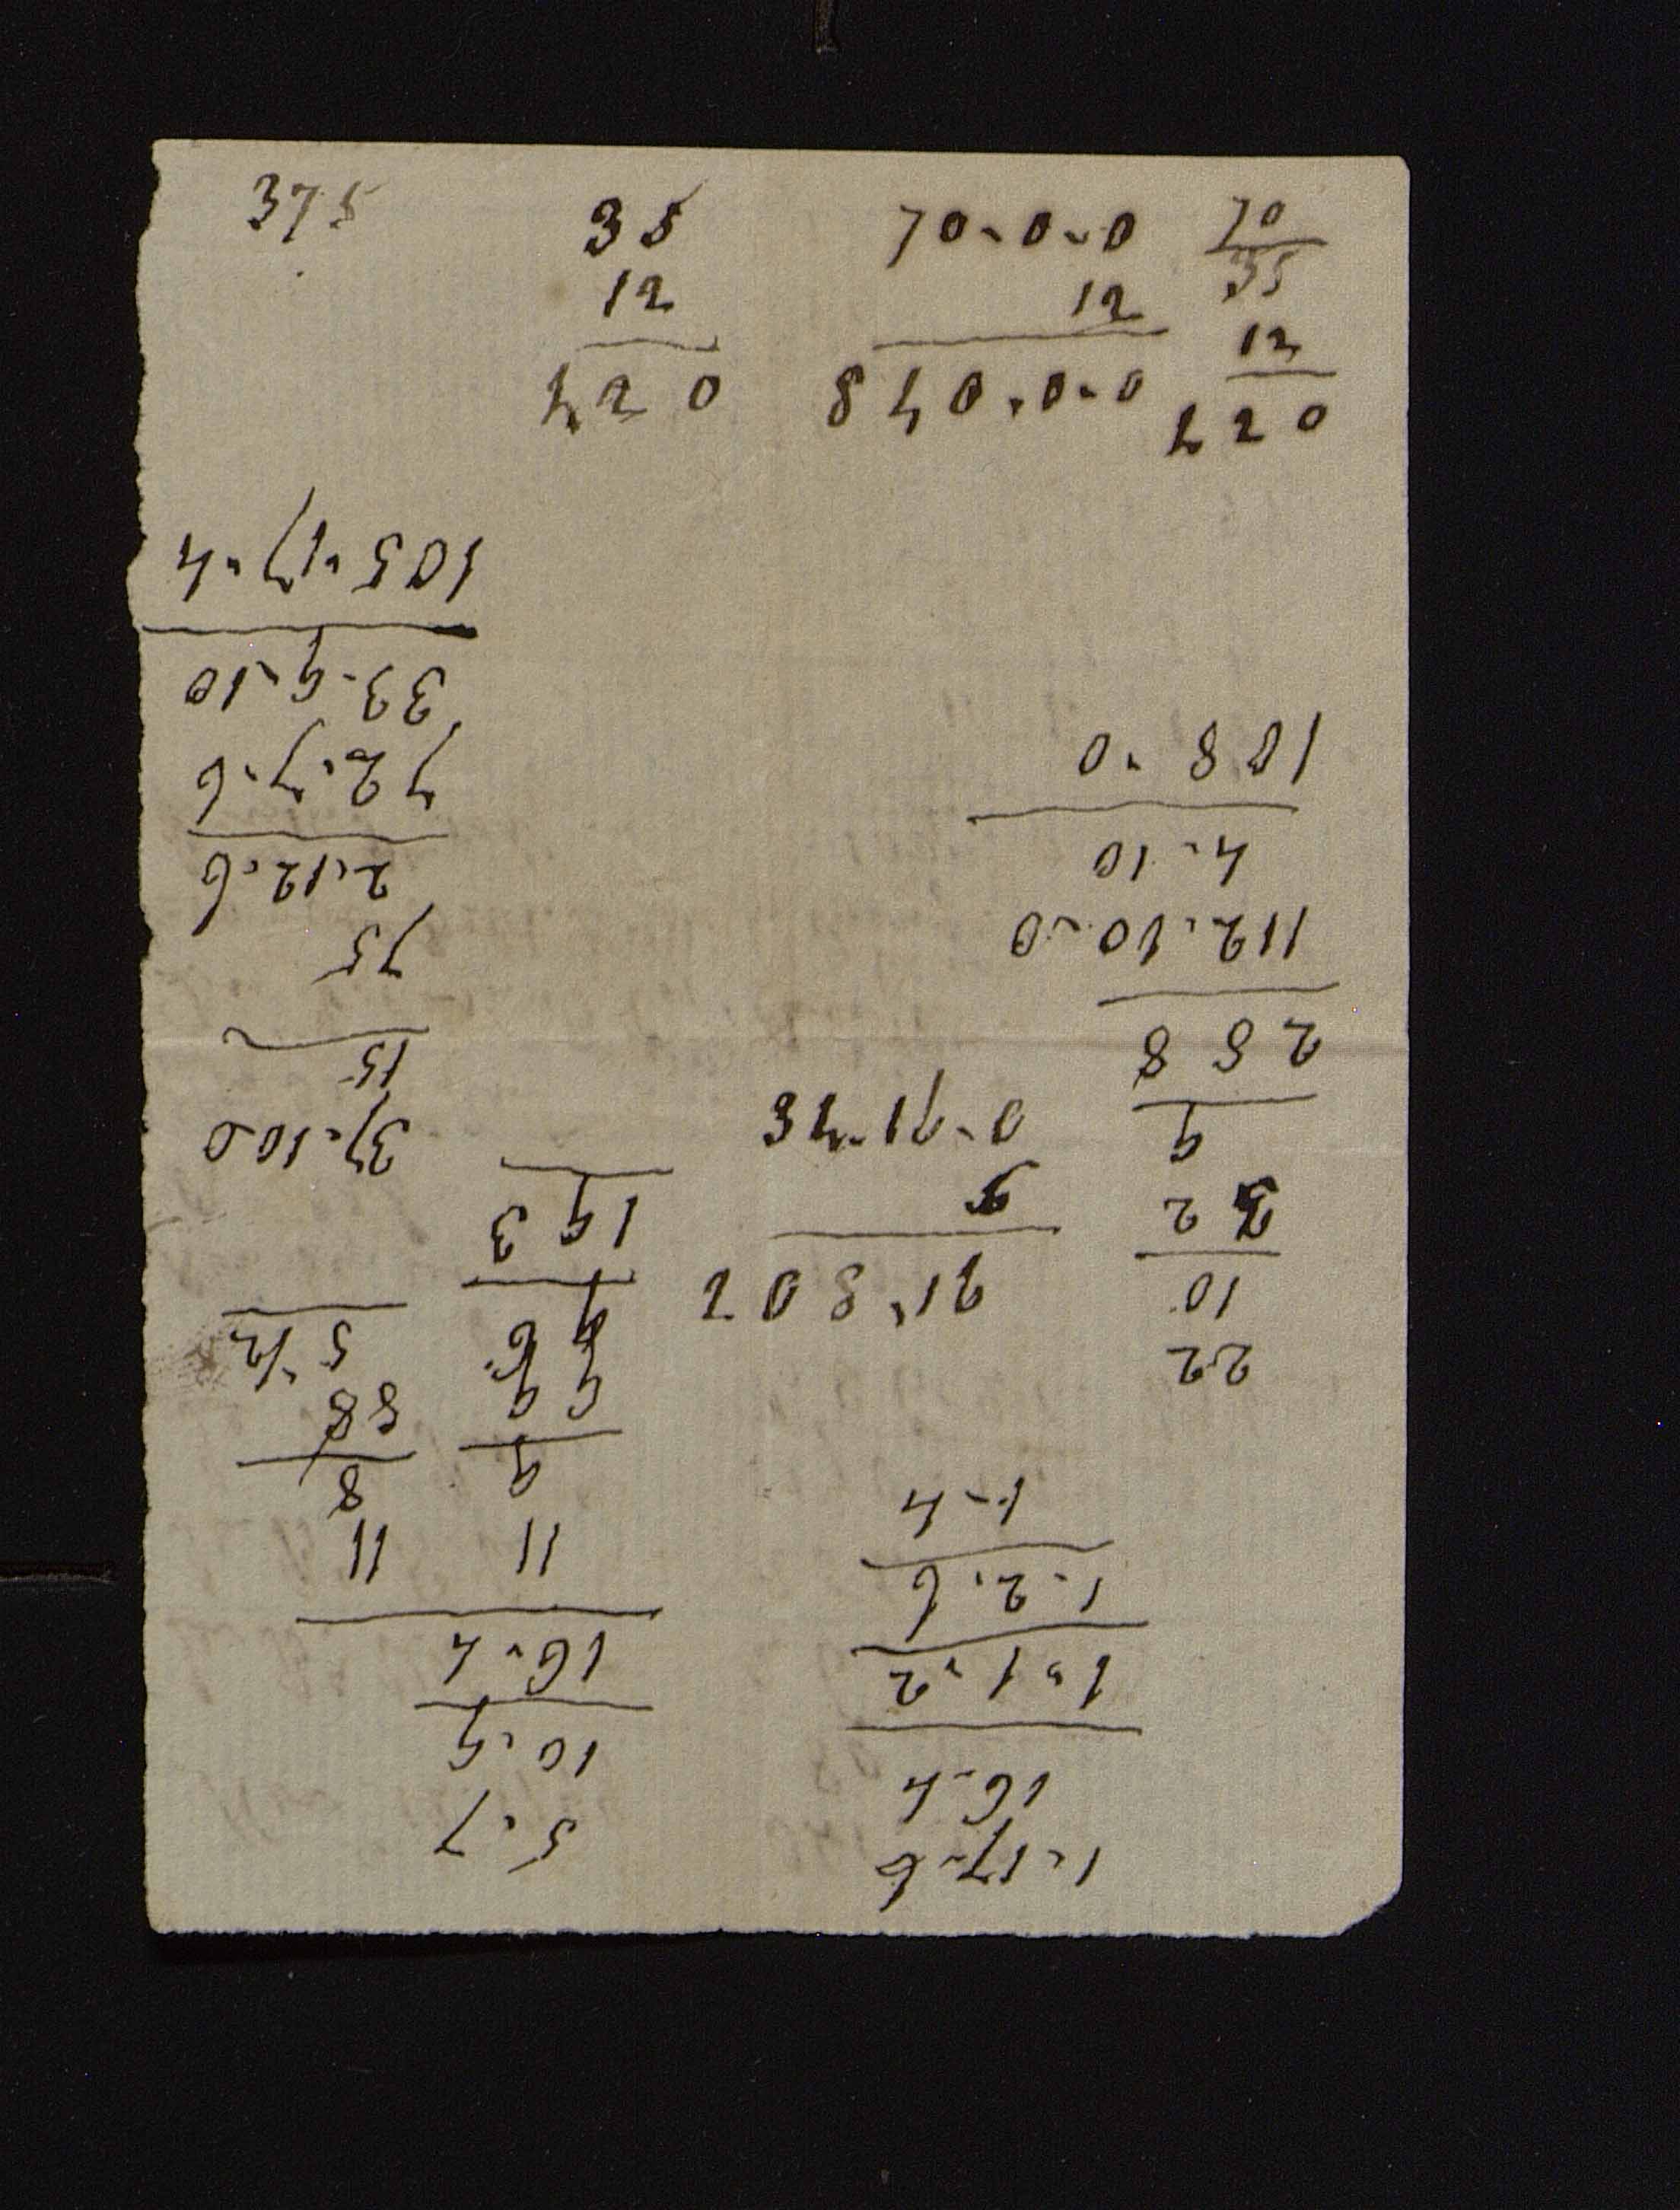 375
35
12
420
70-0-0
12
840-0-0
70
35
12
420
1-17-6
16-4
1-1-2
1-2-6
1-4
22
10
32
9
288
112-10-0
4-10
108-0
5-7
10-9
16-4
11
9
99
193
11
8
88
5 1/2
37-10-0
15
75
2-12-6
72-7-6
33-9-10
105-17-4